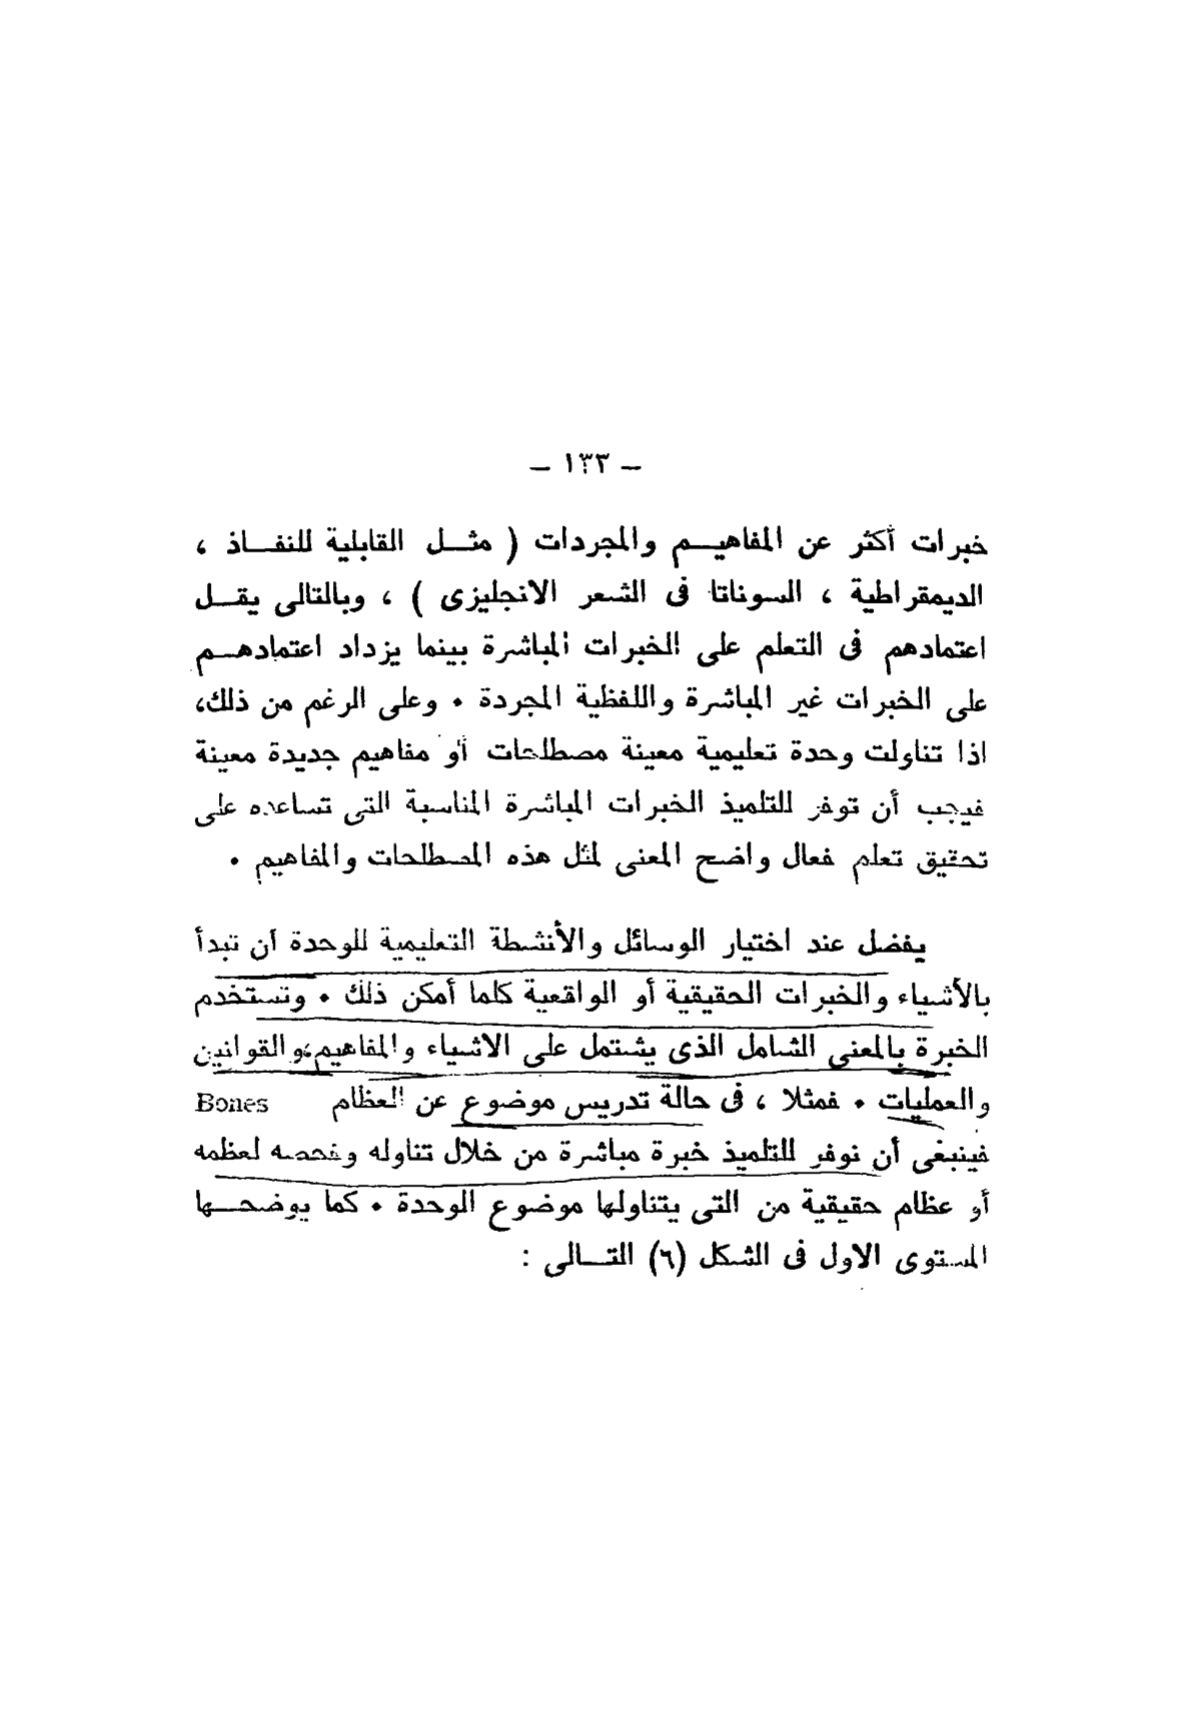 – ١٣٣ –
خبرات أكثر عن المفاهيم والمجردات ( مثل القابلية للنفاذ ،
الديمقراطية ، السوناتا فى الشعر الانجليزى ) ، وبالتالى يقل
اعتمادهم فى التعلم على الخبرات المباشرة بينما يزداد اعتمادهم
على الخبرات غير المباشرة واللفظية المجردة • وعلى الرغم من ذلك،
اذا تناولت وحدة تعليمية معينة مصطلحات أو مفاهيم جديدة معينة
فيجب أن توفر للتلميذ الخبرات المباشرة المناسبة التى تساعده على
تحقيق تعلم فعال واضح المعنى لمثل هذه المصطلحات والمفاهيم •
يفضل عند اختيار الوسائل والأنشطة التعليمية للوحدة أن تبدأ
بالأشياء والخبرات الحقيقية أو الواقعية كلما أمكن ذلك • وتستخدم
الخبرة بالمعنى الشامل الذى يشتمل على الاشياء والمفاهيم والقوانين
والعمليات • فمثلا ، فى حالة تدريس موضوع عن العظام Bones
فينبغى أن نوفر للتلميذ خبرة مباشرة من خلال تناوله وفحصه لعظمه
أو عظام حقيقية من التى يتناولها موضوع الوحدة • كما يوضحها
المستوى الاول فى الشكل (٦) التالى :